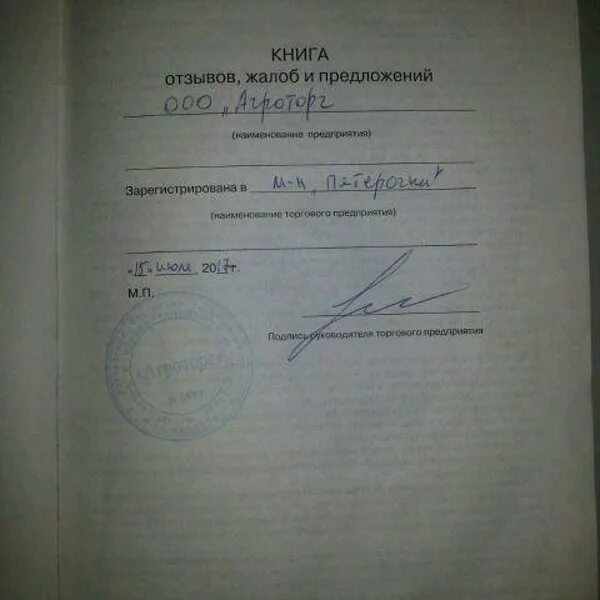 КНИГА
отзывов, жалоб и предложений
ООО „Агроторг
(наименование предприятия)
Зарегистрирована в м-н „Пятерочка"
(наименование торгового предприятия)
«15» июля 2017г.
М.П.
Подпись руководителя торгового предприятия
«Агроторг»